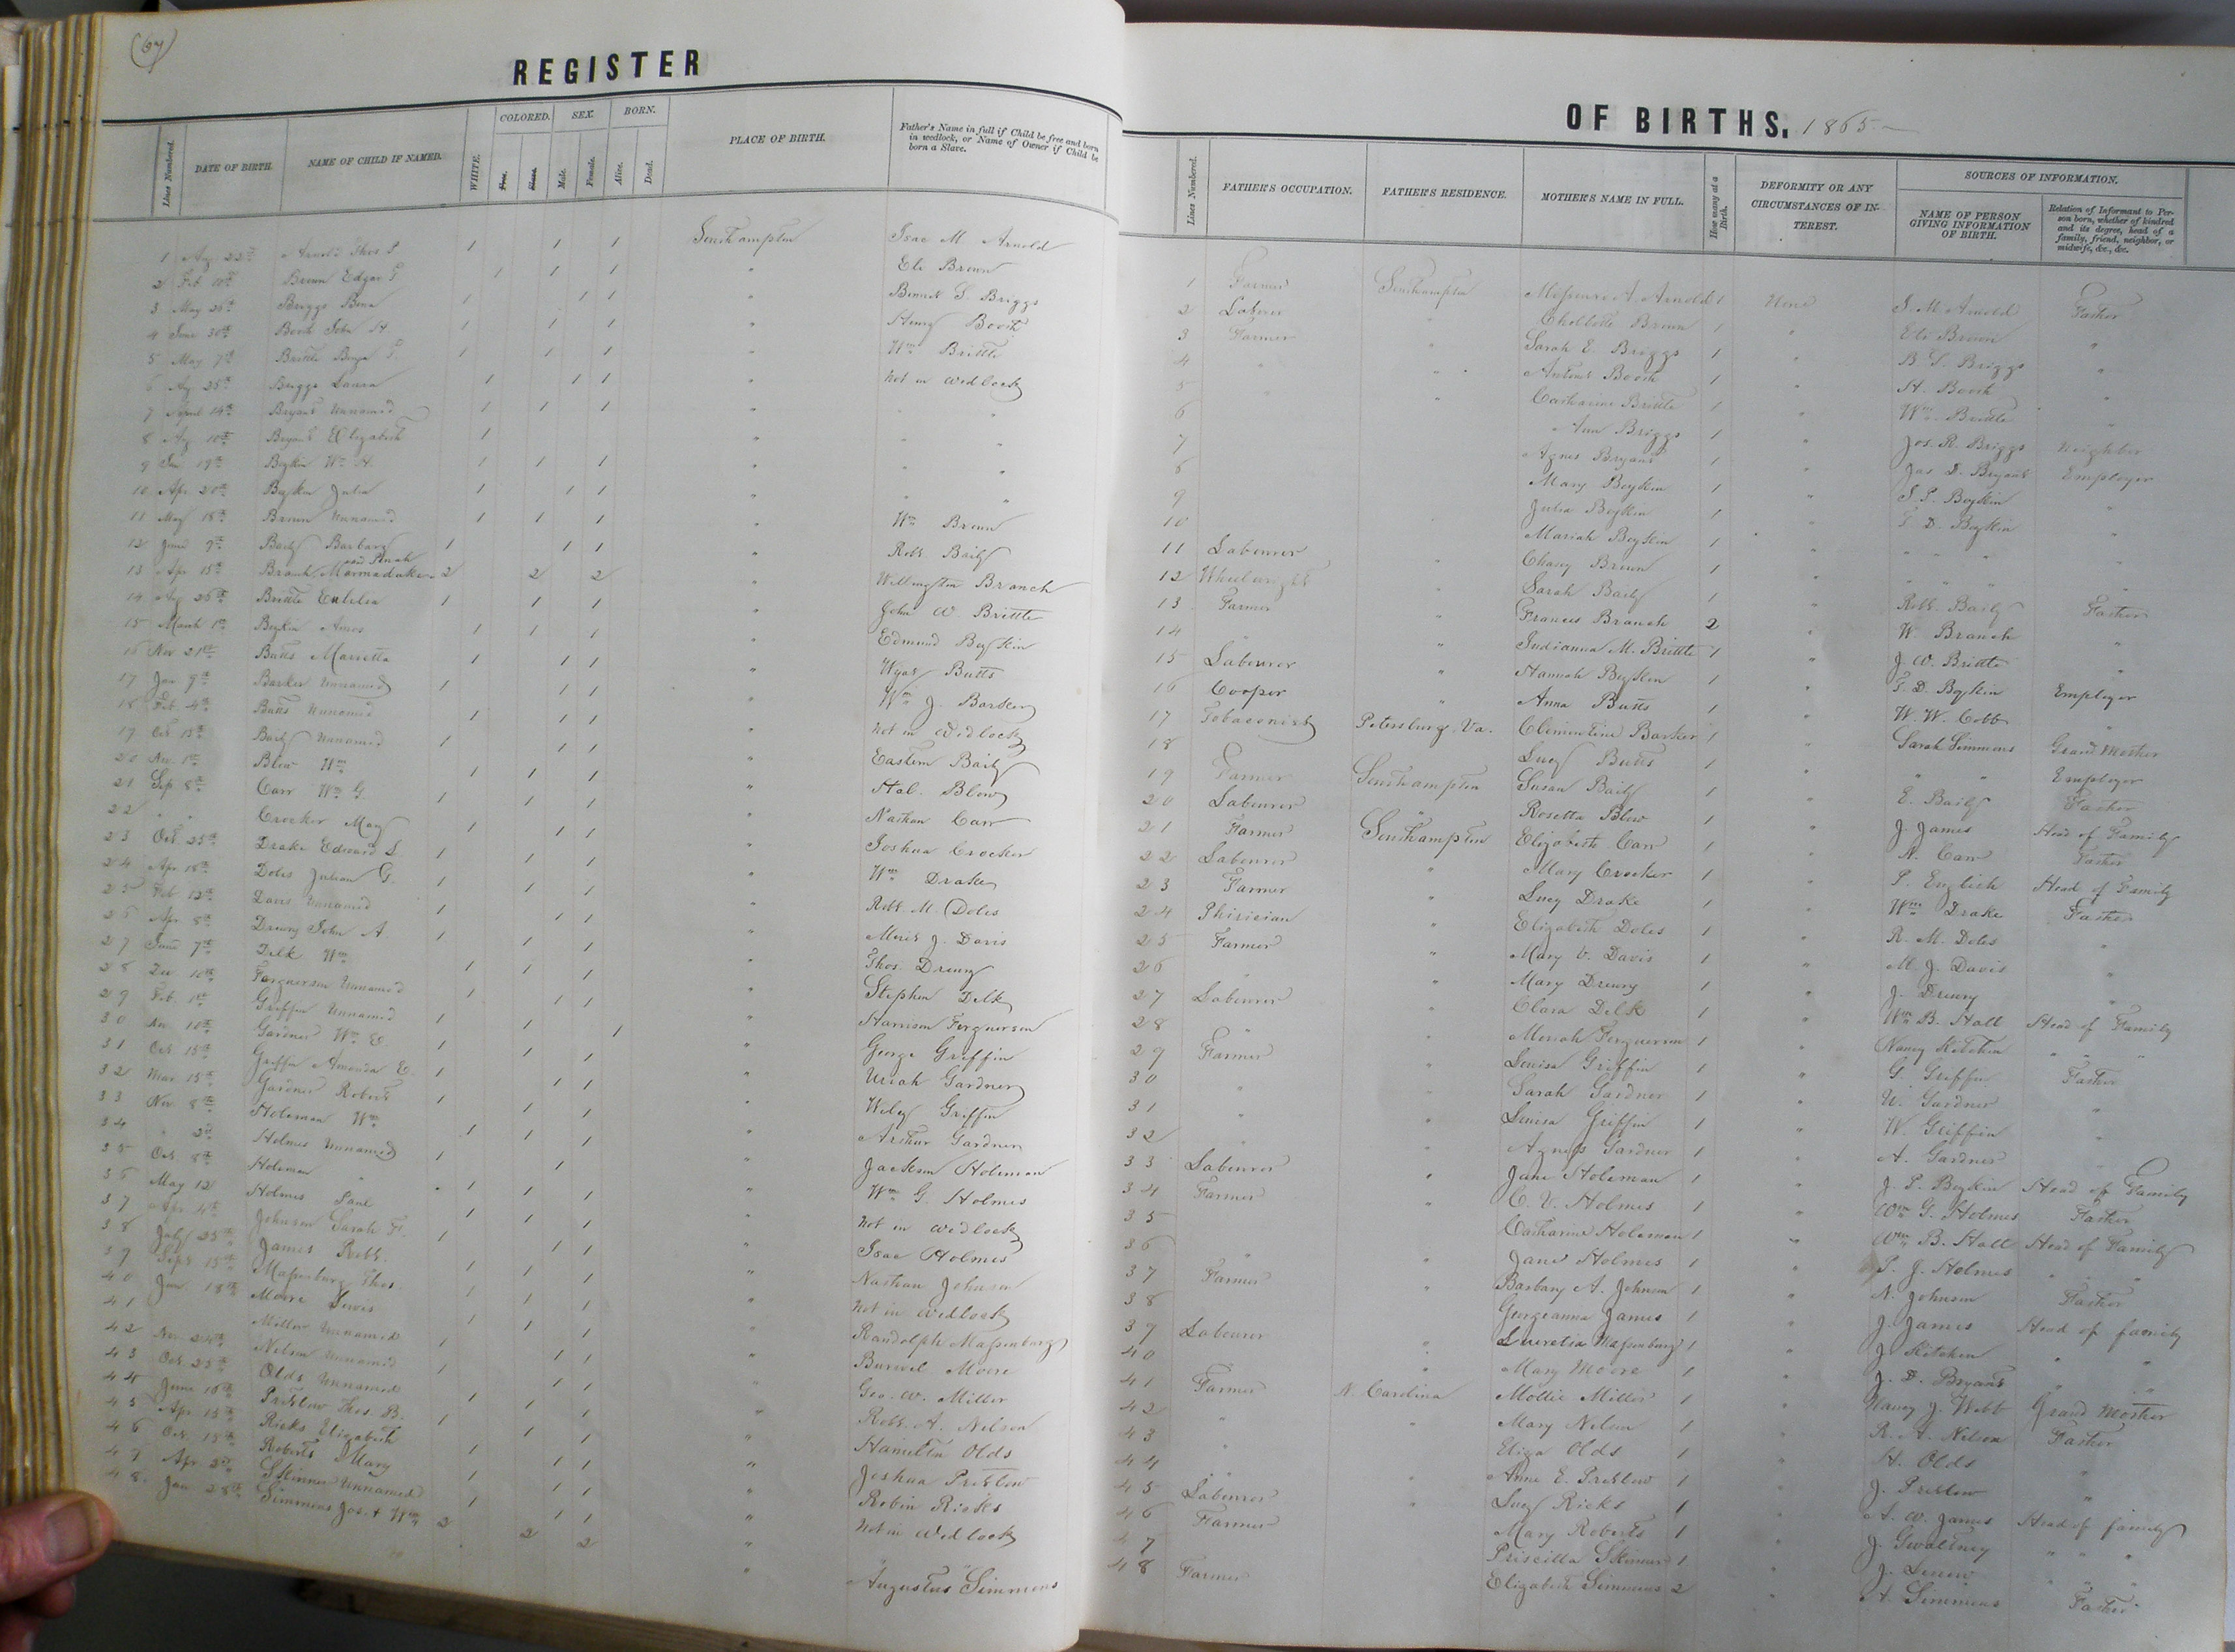 (67)
REGISTER
Lines Numbered.
DATE OF BIRTH.
NAME OF CHILD IF NAMED.
WHITE.
COLORED.
Free.
Slave.
SEX.
Male.
Female.
BORN.
Alive.
Dead.
PLACE OF BIRTH.
Father's Name in full if Child be free and born
in wedlock, or Name of Owner if Child be
born a Slave.
1 Aug 22nd Arnold Thos P 1 1 1 Southampton Isac M Arnold
2 Feb 10th Brown Edgar 1 1 1 " Eli Brown
3 May 26th Briggs 1 1 1 " Bennet S. Briggs
4 June 30th Booth John H. 1 1 1 " Henry Booth
5 May 7th Brittle Benja 1 1 1 " Wm Brittle
6 Ag 25th Briggs Laura 1 1 1 " Not in wedlock
7 April 14th Bryant Unnamed 1 1 1 " " "
8 Aug 10th Bryant Elizabeth 1 " " "
9 19th Boykin Wm H. 1 1 1 " " "
10 Apr 20th Boykin Julia 1 1 1 " " "
11 May 18th Brown Unnamed 1 1 1 " Wm Brown
12 June 9th Baily Barbary 1 1 1 " Robt Baily
13 Apr 15th Branch, Marmaduke 2 2 2 " Willington Branch
14 Ag 26th Brittle Eulelia 1 1 1 " John W. Brittle
15 March 1st Boykin Amos 1 1 1 " Edmund Boykin
16 Nov 21st Butts Marietta 1 1 1 " Wyat Butts
17 Jan 9th Barker Unnamed 1 1 1 " Wm J. Barker
18 Feb. 4th Butts Unnamed 1 1 1 " Not in wedlock
19 Oct 15th Baily Unnamed 1 1 1 " Eastern Baily
20 1st Blow Wm 1 1 1 " Hal. Blow
21 Sep 8th Carr Wm G 1 1 1 " Nathan Carr
22 " " Crocker May 1 1 1 " Joshua Crocker
23 Oct 25th Drake Edward S 1 1 1 " Wm Drake
24 Apr 18th Doles Julian G. 1 1 1 " Robt. M. Doles
25 Feb 12th Davis Unnamed 1 1 1 " J. Davis
26 Apr. 8th Drewry John A. 1 1 1 " Thos. Drewry
27 June 7th Delk Wm 1 1 1 " Stephen Delk
28 10th Ferguerson Unnamed 1 1 1 " Harrison Ferguerson
29 Feb. 1st Griffin Unnamed 1 1 1 " George Griffin
30 10th Gardner Wm E 1 1 1 " Uriah Gardner
31 Oct 15th Griffin Amanda E. 1 1 1 " Wiley Griffin
32 Mar 15th Gardner Robert 1 1 1 " Arthur Gardner
33 Nov 8th Holeman Wm 1 1 1 " Jackson Holeman
34 " 2d Holmes Unnamed 1 1 1 " Wm G. Holmes
35 Oct 8th Holeman " 1 1 1 " Not in wedlock
36 May 12 Holmes Paul 1 1 1 " Isac Holmes
37 Apr. 4th Johnson Sarah F. 1 1 1 " Nathan Johnson
38 July 25th James Robt. 1 1 1 " Not in wedlock
39 Sept 15th Massenburg Thos. 1 1 1 " Randolph Massenburg
40 Jan. 18th Moore Lewis 1 1 1 " Burwel Moore
41 Miller Unnamed 1 1 1 " Geo. W. Miller
42 Nov 24th Nelson Unnamed 1 1 1 " Robt. A. Nelson
43 Oct. 25th Olds Unnamed 1 1 1 " Hamilton Olds
44 June 16th Pretlow Thos. B. 1 1 1 " Joshua Pretlow
45 Apr 15th Ricks Elizabeth 1 1 1 " Robin Ricks
46 Oct. 15th Roberts Mary 1 1 1 " Not in wedlock
47 Apr 2nd Skinner Unnamed 1 1 1 " " "
48. Jan 28th Simmons Jos. + Wm 2 2 2 " Augustus Simmons
OF BIRTHS, 1865
Lines Numbered.
FATHER'S OCCUPATION.
FATHER'S RESIDENCE.
MOTHER'S NAME IN FULL.
How many at a Birth.
DEFORMITY OR ANY
CIRCUMSTANCES OF IN-
TEREST.
SOURCES OF INFORMATION.
NAME OF PERSON
GIVING INFORMATION
OF BIRTH.
Relation of Informant to Per-
son born, whether of kindred
and its degree, head of a
family, friend, neighbor, or
midwife, &c., &c.
1 Farmer Southampton A. Arnold 1 None I. M. Arnold Father
2 Laborer " Brown 1 " Eli Brown "
3 Farmer " Sarah E. Briggs 1 " B. S. Briggs "
4 " " Booth 1 " H. Booth "
5 " Catharine Brittle 1 " Wm. Brittle "
6 Ann Briggs 1 " Jos. R. Briggs Neighbor
7 Agnes Bryant 1 " Jas D. Bryant Employer
8 Mary Boykin 1 " Boykin "
9 Julia Boykin 1 " D. Boykin "
10 Mariah Boykin 1 " " " "
11 Labourer " Chasey Brown 1 " " " "
12 Wheelwright " Sarah Baily 1 " Robt. Baily Father
13 Farmer " Frances Branch 2 " W. Branch "
14 " " Indianna M. Brittle 1 " J. W. Brittle "
15 Labourer " Hannah Boykin 1 " D. Boykin Employer
16 Cooper " Anna Butts 1 " W. W. Cobb "
17 Tobaconist Petersburg, Va. Clementine Barker 1 " Sarah Simmons Grand Mother
18 Lucy Butts 1 " " " Employer
19 Farmer Southampton Susan Baily 1 " E. Baily Father
20 Labourer " Rosetta Blow 1 " J. James Head of Family
21 Farmer Southampton Elizabeth Carr 1 " N. Carr Father
22 Labourer " Mary Crocker 1 " P. English Head of Family
23 Farmer " Lucy Drake 1 " Wm Drake Father
24 Phisician " Elizabeth Doles 1 " R. M. Doles "
25 Farmer " Mary V. Davis 1 " M. J. Davis "
26 " " Mary Drewry 1 " J. Drewry "
27 Labourer " Clara Delk 1 " Wm B. Hall Head of Family
28 " " Moriah Ferguerson 1 " Nancy Kitchen " " "
29 Farmer " Louisa Griffin 1 " G. Griffin Father
30 " " Sarah Gardner 1 " U. Gardner "
31 " " Louisa Griffin 1 " W. Griffin "
32 " " Agness Gardner 1 " A. Gardner "
33 Labourer " Jane Holeman 1 " J. P. Boykin Head of Family
34 Farmer " C. V. Holmes 1 " Wm G. Holmes Father
35 Catharine Holeman 1 " Wm B. Hall Head of Family
36 " " Jane Holmes 1 " P. J. Holmes " "
37 Farmer " Barbary A. Johnson 1 " N. Johnson Father
38 Georgeanna James 1 " J. James Head of family
39 Labourer " Lucretia Massenburg 1 " J. Kitchen " "
40 " Mary Moore 1 " J. D. Bryant " "
41 Farmer N. Carolina Mollie Miller 1 " Nancy J. Webb Grand Mother
42 " " Mary Nelson 1 " R. A. Nelson Father
43 " Eliza Olds 1 " H. Olds "
44 " " Anne E. Pretlow 1 " J. Pretlow "
45 Labourer " Lucy Ricks 1 " A. W. James Head of family
46 Farmer Mary Roberts 1 " J. Gwaltney " " "
47 Priscilla Skinner 1 " J. " "
48 Farmer Elizabeth Simmons 2 " A. Simmons Father